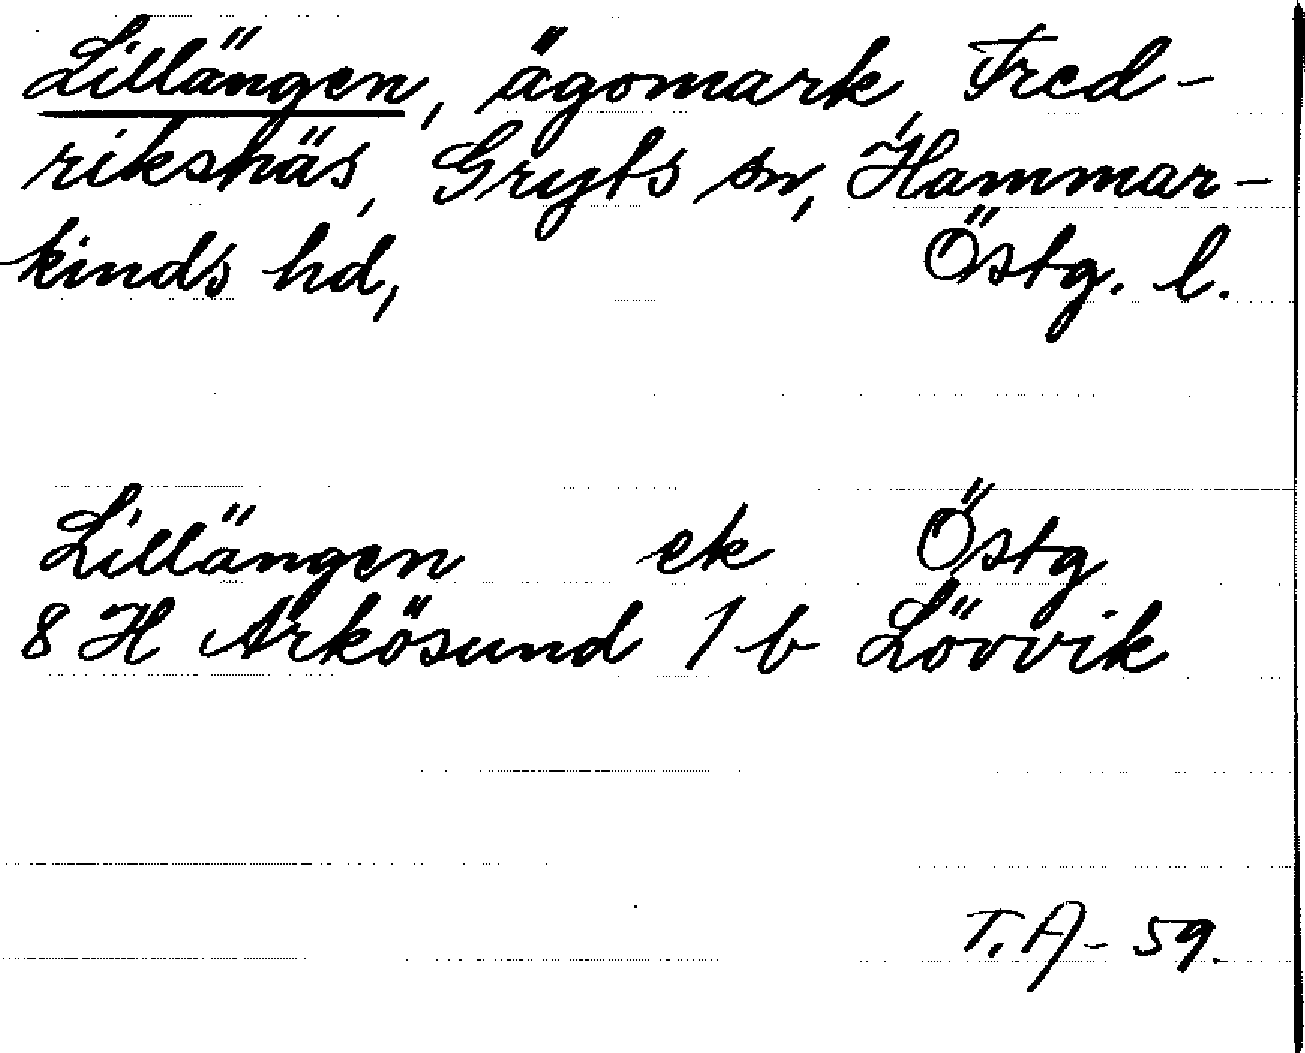 Lillängen, ägomark, Fred-
riksnäs, Gryts sn, Hammar-
kinds hd, Östg. l.
Lillängen ek Östg
8 H Arkösund 1 b Lövvik
T. A- 59.